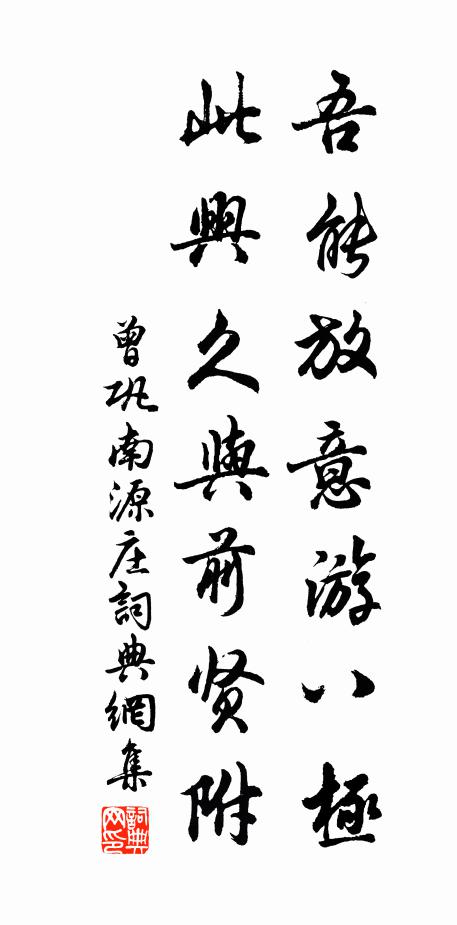 吾能放意游八極
此興久與前賢附
曾巩南源庄詞典網集
詞典网印